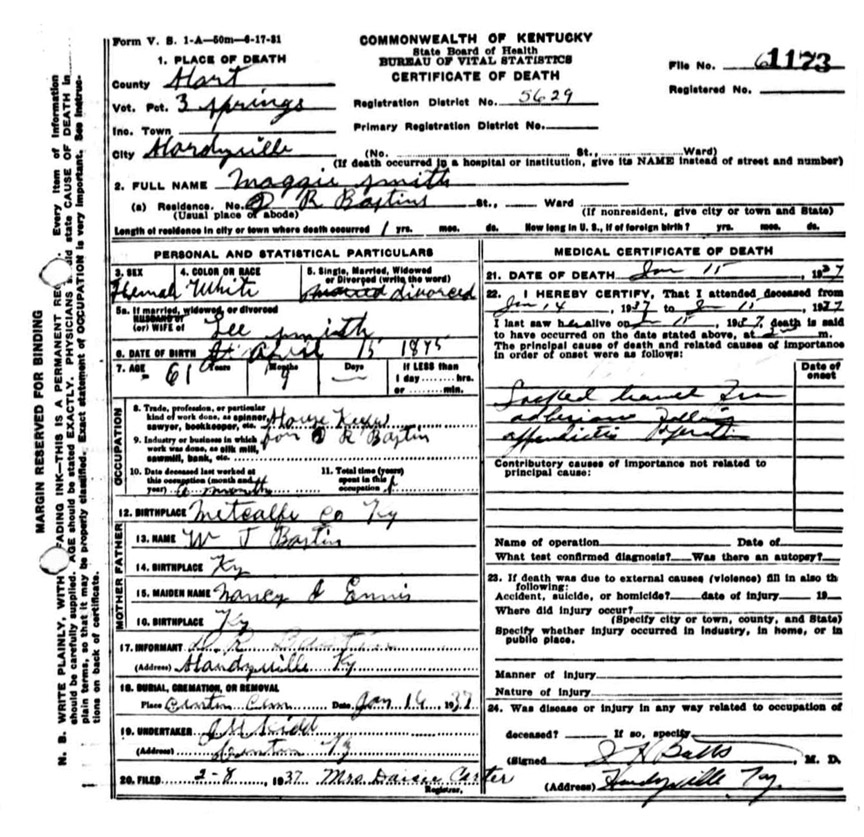 Form V. S. 1-A—50m—6-17-31
COMMONWEALTH OF KENTUCKY
State Board of Health
BUREAU OF VITAL STATISTICS
CERTIFICATE OF DEATH
File No. 1173
Registered No.
1. PLACE OF DEATH
County Hart
Vot. Pct. 3 Springs
Inc. Town
City Hardyville
Registration District No. 5629
Primary Registration District No.
(No. St., Ward)
(If death occurred in a hospital or institution, give its NAME instead of street and number)
2. FULL NAME Maggie Smith
(a) Residence. No. D R Bastins St., Ward
(Usual place of abode) (If nonresident, give city or town and State)
Length of residence in city or town where death occurred 1 yrs. mos. ds. How long in U. S., if of foreign birth? yrs. mos. ds.
PERSONAL AND STATISTICAL PARTICULARS
3. SEX 4. COLOR OR RACE 5. Single, Married, Widowed or Divorced (write the word)
Female White married divorced
5a. If married, widowed, or divorced
HUSBAND of
(or) WIFE of Lee Smith
6. DATE OF BIRTH April 15 1875
7. AGE 61 Years Months 9 Days — If LESS than
1 day hrs.
or min.
OCCUPATION
8. Trade, profession, or particular kind of work done, as spinner, sawyer, bookkeeper, etc. House Keeper
9. Industry or business in which work was done, as silk mill, sawmill, bank, etc. for D R Bastin
10. Date deceased last worked at this occupation (month and year) a month
11. Total time (years) spent in this occupation
12. BIRTHPLACE Metcalfe Co Ky
FATHER
13. NAME W J Bastin
14. BIRTHPLACE Ky
MOTHER
15. MAIDEN NAME Nancy J Ennis
16. BIRTHPLACE Ky
17. INFORMANT D. R. Bastin
(Address) Hardyville Ky
18. BURIAL, CREMATION, OR REMOVAL
Place Cem Date Jan 16 1937
19. UNDERTAKER
(Address) Ky
20. FILED 2-8, 1937 Mrs Daisie Carter
Registrar.
MEDICAL CERTIFICATE OF DEATH
21. DATE OF DEATH Jan 15, 1937
22. I HEREBY CERTIFY, That I attended deceased from
Jan 14, 1937 to Jan 15, 1937
I last saw her alive on Jan 15, 1937, death is said
to have occurred on the date stated above, at m.
The principal cause of death and related causes of importance in order of onset were as follows:
Date of onset
Locked bowel from
adhesions following
appendicitis operation
Contributory causes of importance not related to principal cause:
Name of operation Date of
What test confirmed diagnosis? Was there an autopsy?
23. If death was due to external causes (violence) fill in also th
following:
Accident, suicide, or homicide? date of injury 19
Where did injury occur?
(Specify city or town, county, and State)
Specify whether injury occurred in industry, in home, or in
public place.
Manner of injury
Nature of injury
24. Was disease or injury in any way related to occupation of
deceased? If so, specify
(Signed) Batts, M. D.
(Address) Hardyville Ky.
MARGIN RESERVED FOR BINDING
N. B. WRITE PLAINLY, WITH FADING INK—THIS IS A PERMANENT REC Every item of information
should be carefully supplied. AGE should be stated EXACTLY. PHYSICIANS state CAUSE OF DEATH in
plain terms, so that it may be properly classified. Exact statement of OCCUPATION is very important. See instruc-
tions on back of certificate.